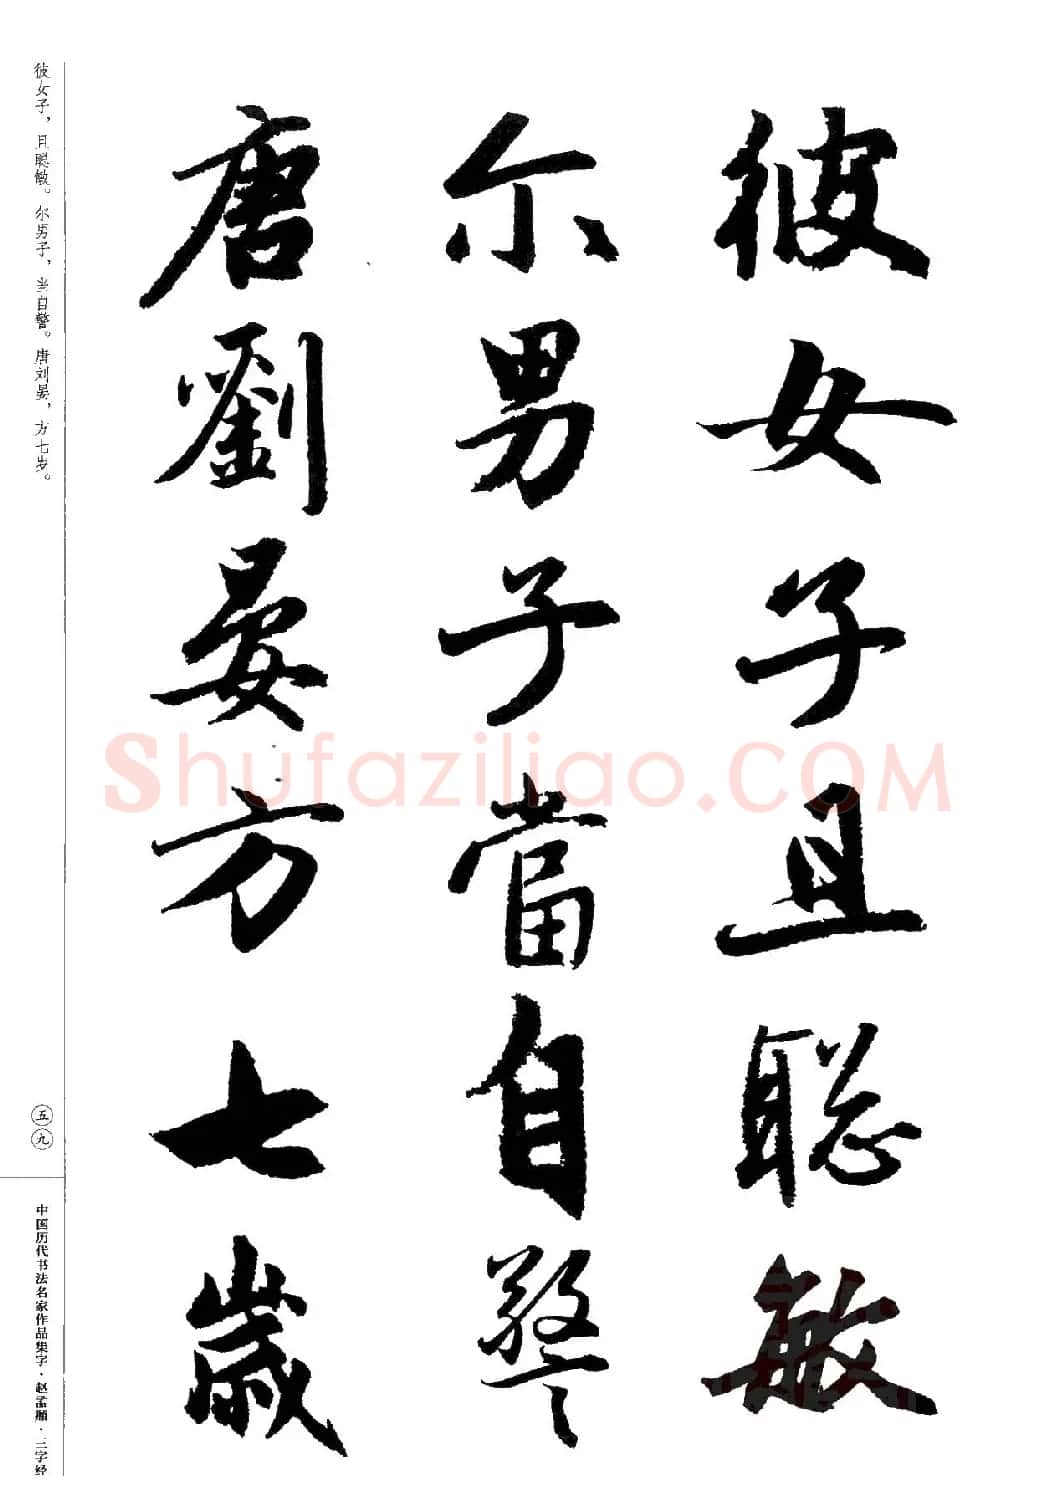 彼女子且聡敏
尓男子當自警
唐劉晏方七歲
彼女子，且聪敏。尔男子，当自警。唐刘晏，方七岁。
五九
中国历代书法名家作品集字·赵孟頫·三字经
Shufaziliao.COM